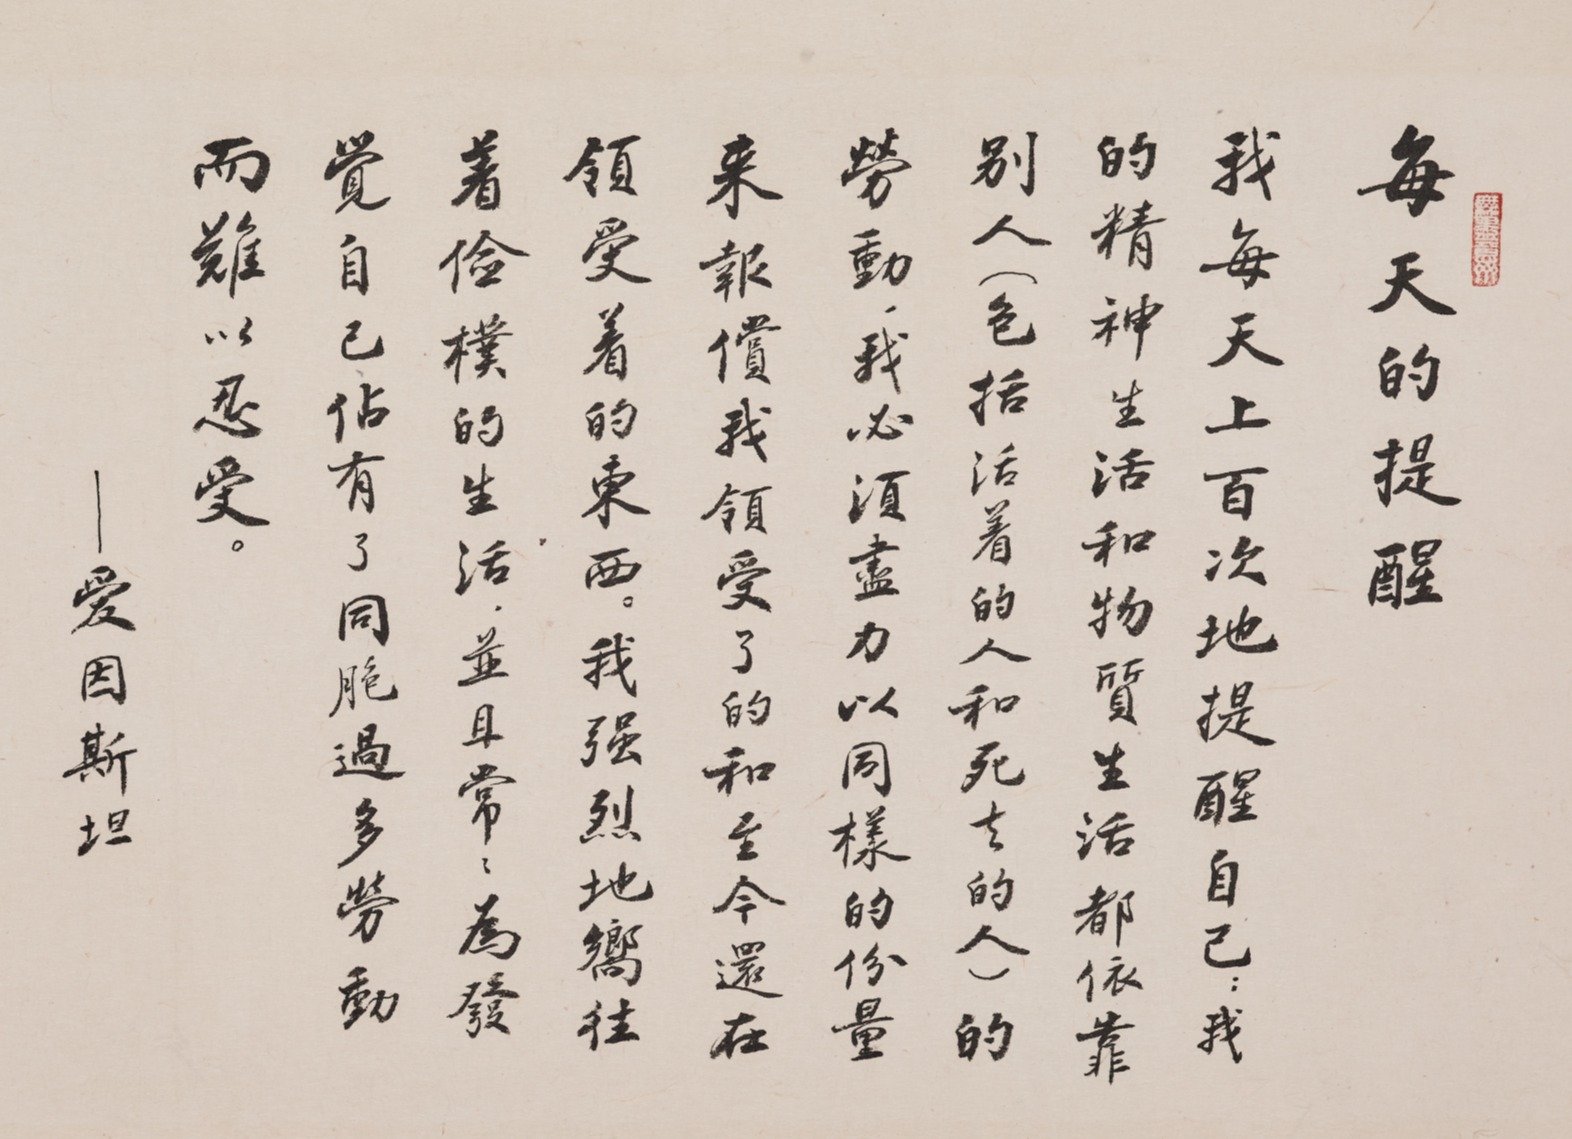 每天的提醒
我每天上百次地提醒自己：我
的精神生活和物質生活都依靠
别人（包括活着的人和死去的人）的
勞動，我必須盡力以同樣的份量
来報償我領受了的和至今還在
領受着的東西。我强烈地嚮往
着儉樸的生活，並且常〻為發
覺自己佔有了同胞過多勞動
而難以忍受。
——愛因斯坦